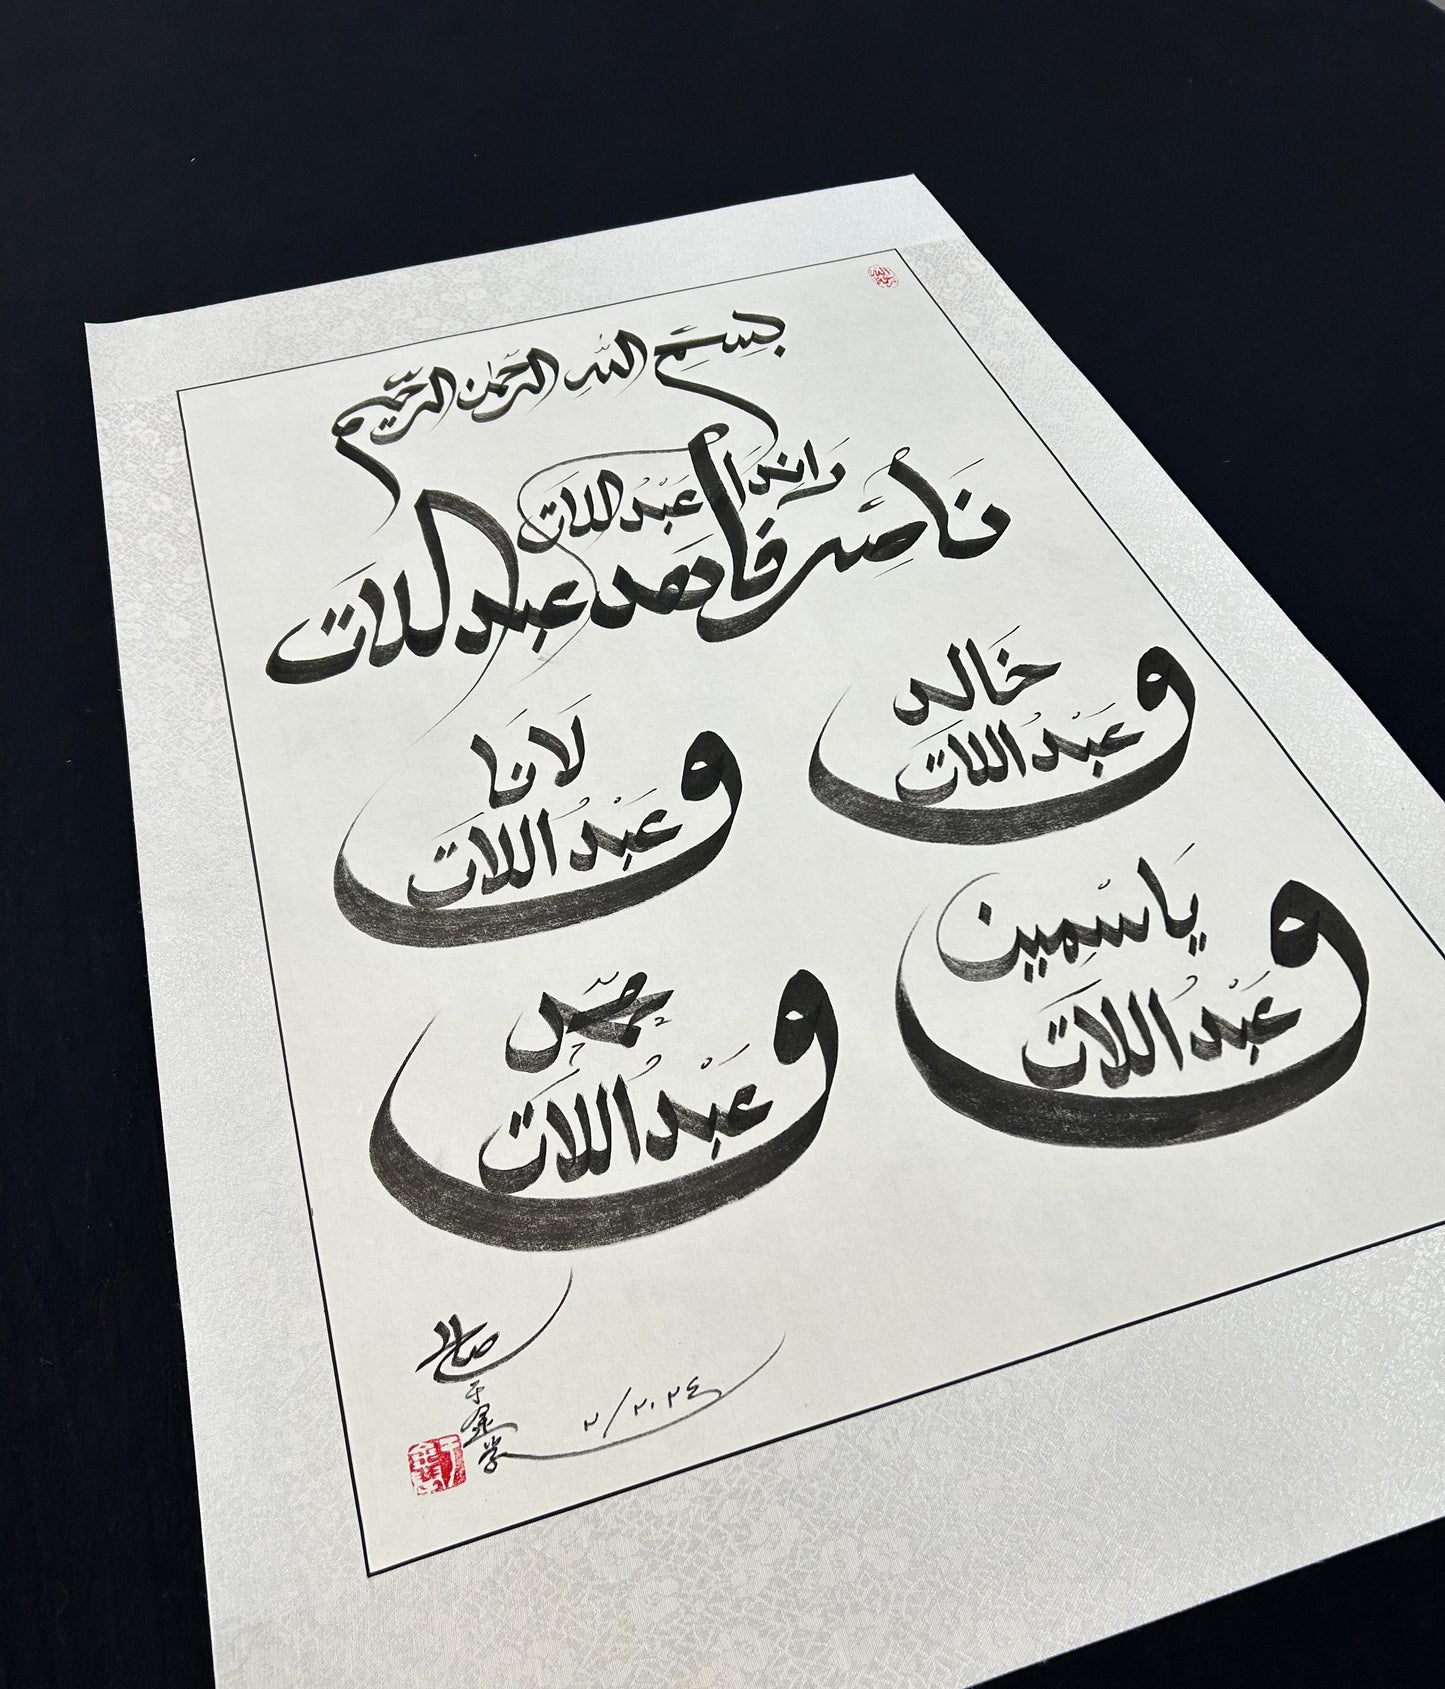 بِسْمِ اللهِ الرَّحْمٰنِ الرَّحِيْمِ
رانْدا عَبْدُ اللات
نَاصِر فَاهد عبد اللات
و خَالد عَبْدُ اللَات
و لَانَا عَبْدُ اللَاتَ
و يَاسْمِين عَبْدُ اللَاتَ
و محمّد عَبْدُ اللَاتَ
于金学
٢/٢٠٢٤